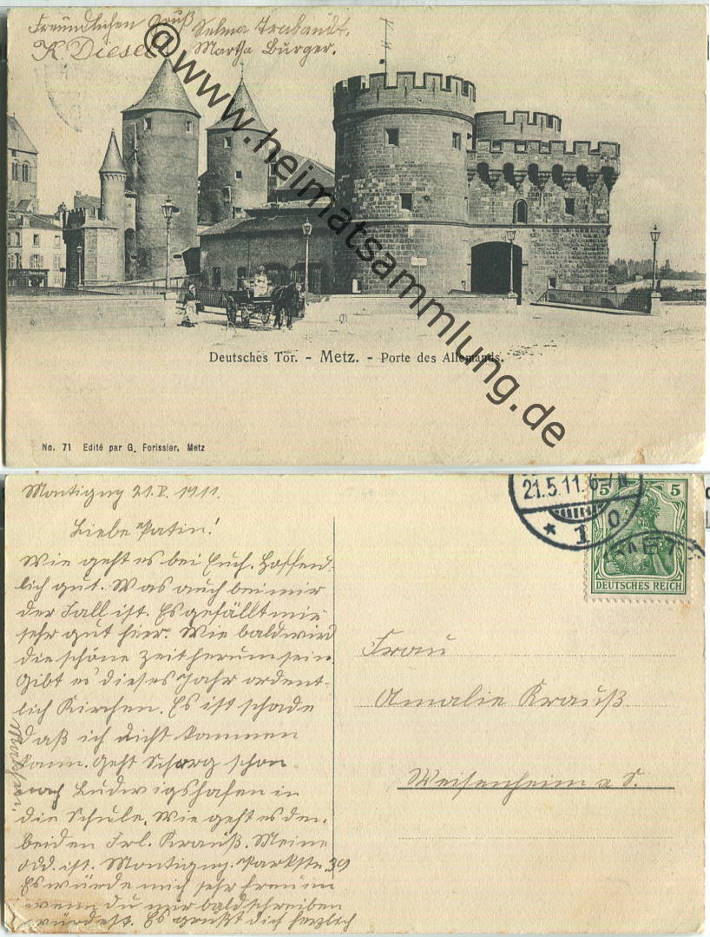 Freundlichen Gruß Selma Trabandt,
K. Diesel Martha Burger.
www.heimatsammlung.de
Deutsches Tor. - Metz. - Porte des Allemands.
No. 71 Edité par G. Forissier, Metz
Montigny 21. V. 1911.
Liebe Patin!
Wie geht es bei Euch. Hoffend-
lich gut. Was auch bei mir
der Fall ist. Es gefällt mir
sehr gut hier. Wie bald wird
die schöne Zeit herum sein.
Gibt es dieses Jahr ordent-
lich Kirchen. Es ist schade
daß ich nicht kommen
kann. Geht schon
nach Ludwigshafen in
die Schule. Wie geht es den
beiden Frl. Krauß. Meine
Add. ist. Montigny. Parkstr. 39
Es würde mich sehr freuen
wenn du mir bald schreiben
würdest. Es grüßt dich herzlich
21.5.11. 6-7N
* 1 o
METZ
5 5
DEUTSCHES REICH
Frau
Amalie Krauß
Weisenheim a S.